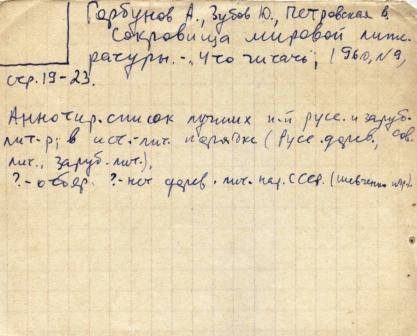 Горбунов А., Зубов Ю., Петровская В.
Сокровища мировой лите-
ратуры. - "Что читать", 1960, №9,
стр. 19-23.
Аннотир. список лучших п-й русс. и заруб.
лит-р, в ист.-лит. порядке (Русс. дорев., сов.
лит., заруб. лит.),
?-отбор. ?-нет дорев. лит. нар. СССР. (Шевченко и др.)